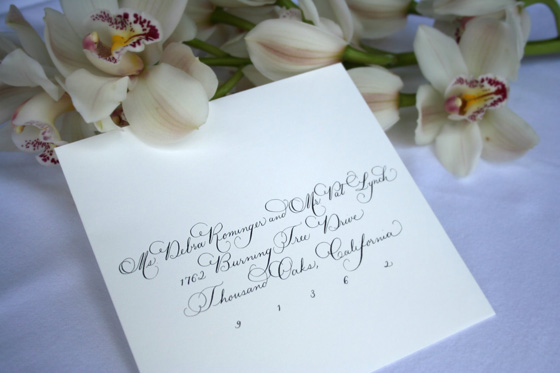 Ms Debra Rominger and Mr Pat Lynch
1762 Burning Tree Drive
Thousand Oaks, California
9 1 3 6 2